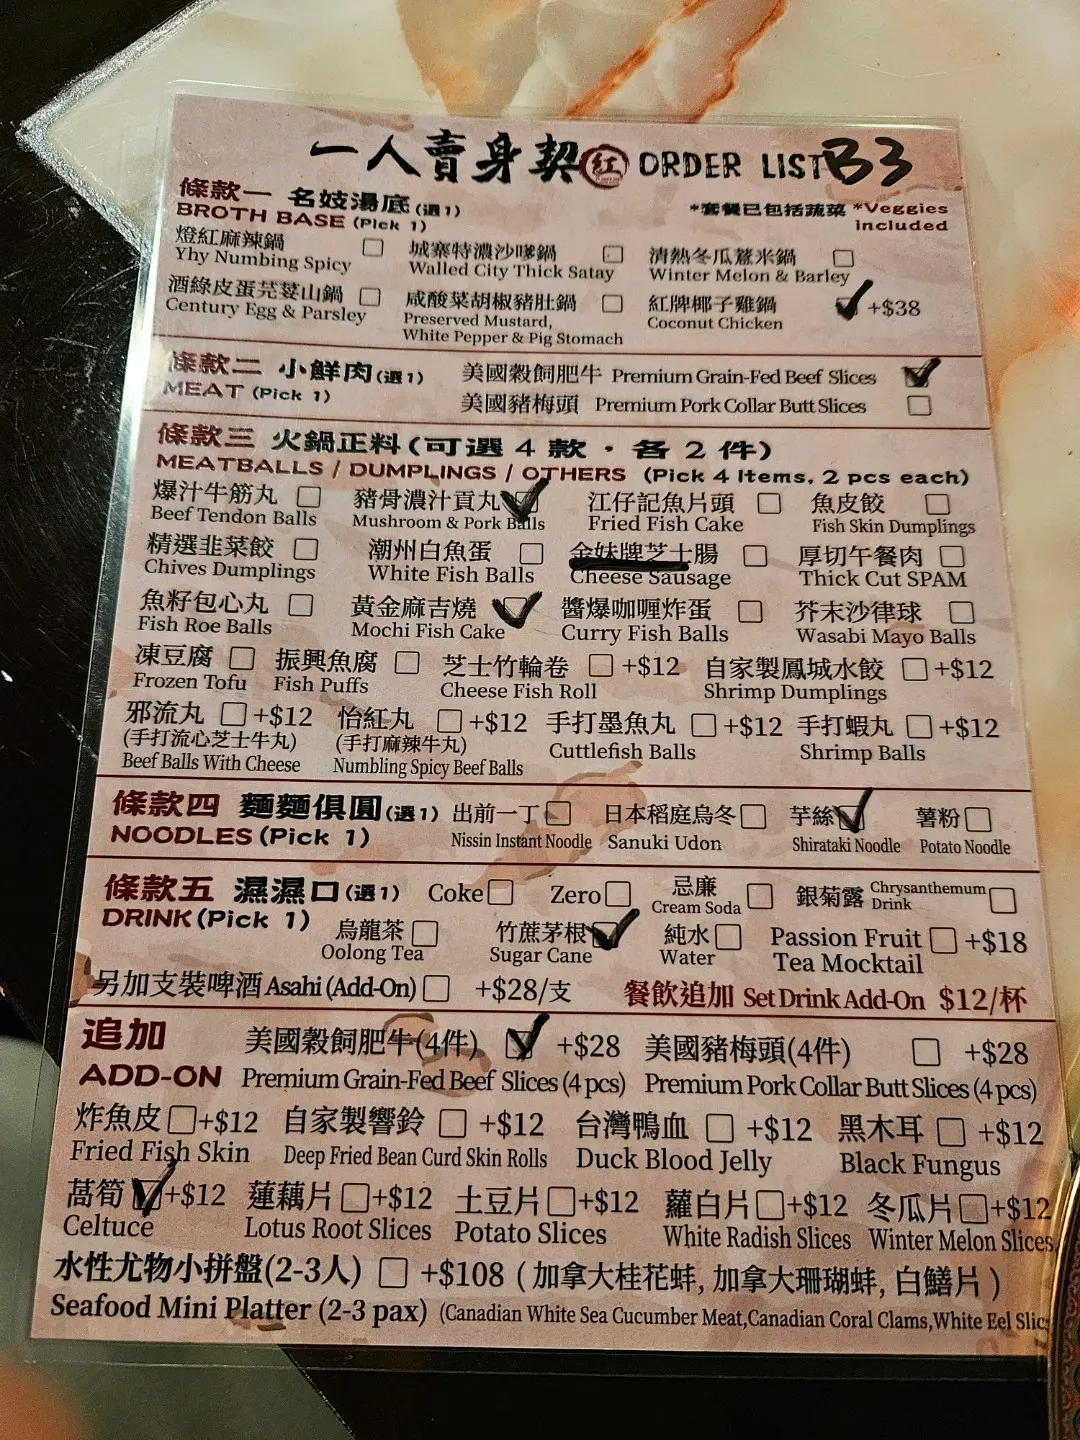 一人賣身契 紅 ORDER LIST B3
條款一 名妓湯底(選1)
BROTH BASE (Pick 1)
*套餐已包括蔬菜 *Veggies included
燈紅麻辣鍋 城寨特濃沙嗲鍋 清熱冬瓜薏米鍋
Yhy Numbing Spicy Walled City Thick Satay Winter Melon & Barley
酒綠皮蛋芫荽山鍋 咸酸菜胡椒豬肚鍋 紅牌椰子雞鍋 +$38
Century Egg & Parsley Preserved Mustard, Coconut Chicken
White Pepper & Pig Stomach
條款二 小鮮肉(選1) 美國穀飼肥牛 Premium Grain-Fed Beef Slices
MEAT (Pick 1) 美國豬梅頭 Premium Pork Collar Butt Slices
條款三 火鍋正料(可選4款·各2件)
MEATBALLS / DUMPLINGS / OTHERS (Pick 4 Items, 2 pcs each)
爆汁牛筋丸 豬骨濃汁貢丸 江仔記魚片頭 魚皮餃
Beef Tendon Balls Mushroom & Pork Balls Fried Fish Cake Fish Skin Dumplings
精選韭菜餃 潮州白魚蛋 金妹牌芝士腸 厚切午餐肉
Chives Dumplings White Fish Balls Cheese Sausage Thick Cut SPAM
魚籽包心丸 黃金麻吉燒 醬爆咖喱炸蛋 芥末沙律球
Fish Roe Balls Mochi Fish Cake Curry Fish Balls Wasabi Mayo Balls
凍豆腐 振興魚腐 芝士竹輪卷 +$12 自家製鳳城水餃 +$12
Frozen Tofu Fish Puffs Cheese Fish Roll Shrimp Dumplings
邪流丸 +$12 怡紅丸 +$12 手打墨魚丸 +$12 手打蝦丸 +$12
(手打流心芝士牛丸) (手打麻辣牛丸) Cuttlefish Balls Shrimp Balls
Beef Balls With Cheese Numbling Spicy Beef Balls
條款四 麵麵俱圓(選1) 出前一丁 日本稻庭烏冬 芋絲 薯粉
NOODLES (Pick 1) Nissin Instant Noodle Sanuki Udon Shirataki Noodle Potato Noodle
條款五 濕濕口(選1) Coke Zero 忌廉 Cream Soda 銀菊露 Chrysanthemum Drink
DRINK (Pick 1) 烏龍茶 竹蔗茅根 純水 Passion Fruit +$18
Oolong Tea Sugar Cane Water Tea Mocktail
另加支裝啤酒 Asahi (Add-On) +$28/支 餐飲追加 Set Drink Add-On $12/杯
追加 美國穀飼肥牛(4件) +$28 美國豬梅頭(4件) +$28
ADD-ON Premium Grain-Fed Beef Slices (4 pcs) Premium Pork Collar Butt Slices (4 pcs)
炸魚皮 +$12 自家製響鈴 +$12 台灣鴨血 +$12 黑木耳 +$12
Fried Fish Skin Deep Fried Bean Curd Skin Rolls Duck Blood Jelly Black Fungus
萵筍 +$12 蓮藕片 +$12 土豆片 +$12 蘿白片 +$12 冬瓜片 +$12
Celtuce Lotus Root Slices Potato Slices White Radish Slices Winter Melon Slices
水性尤物小拼盤(2-3人) +$108 (加拿大桂花蚌, 加拿大珊瑚蚌, 白鱔片)
Seafood Mini Platter (2-3 pax) (Canadian White Sea Cucumber Meat, Canadian Coral Clams, White Eel Slic